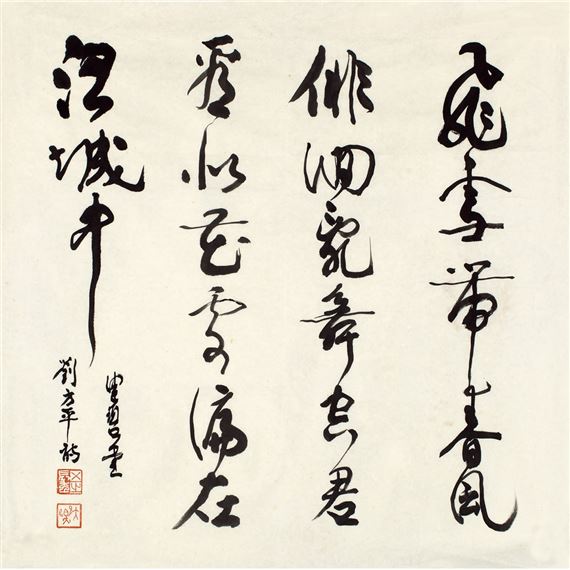 飛雪帶春風
徘徊亂舞空君
看似花處偏在
洛城中
劉方平詩